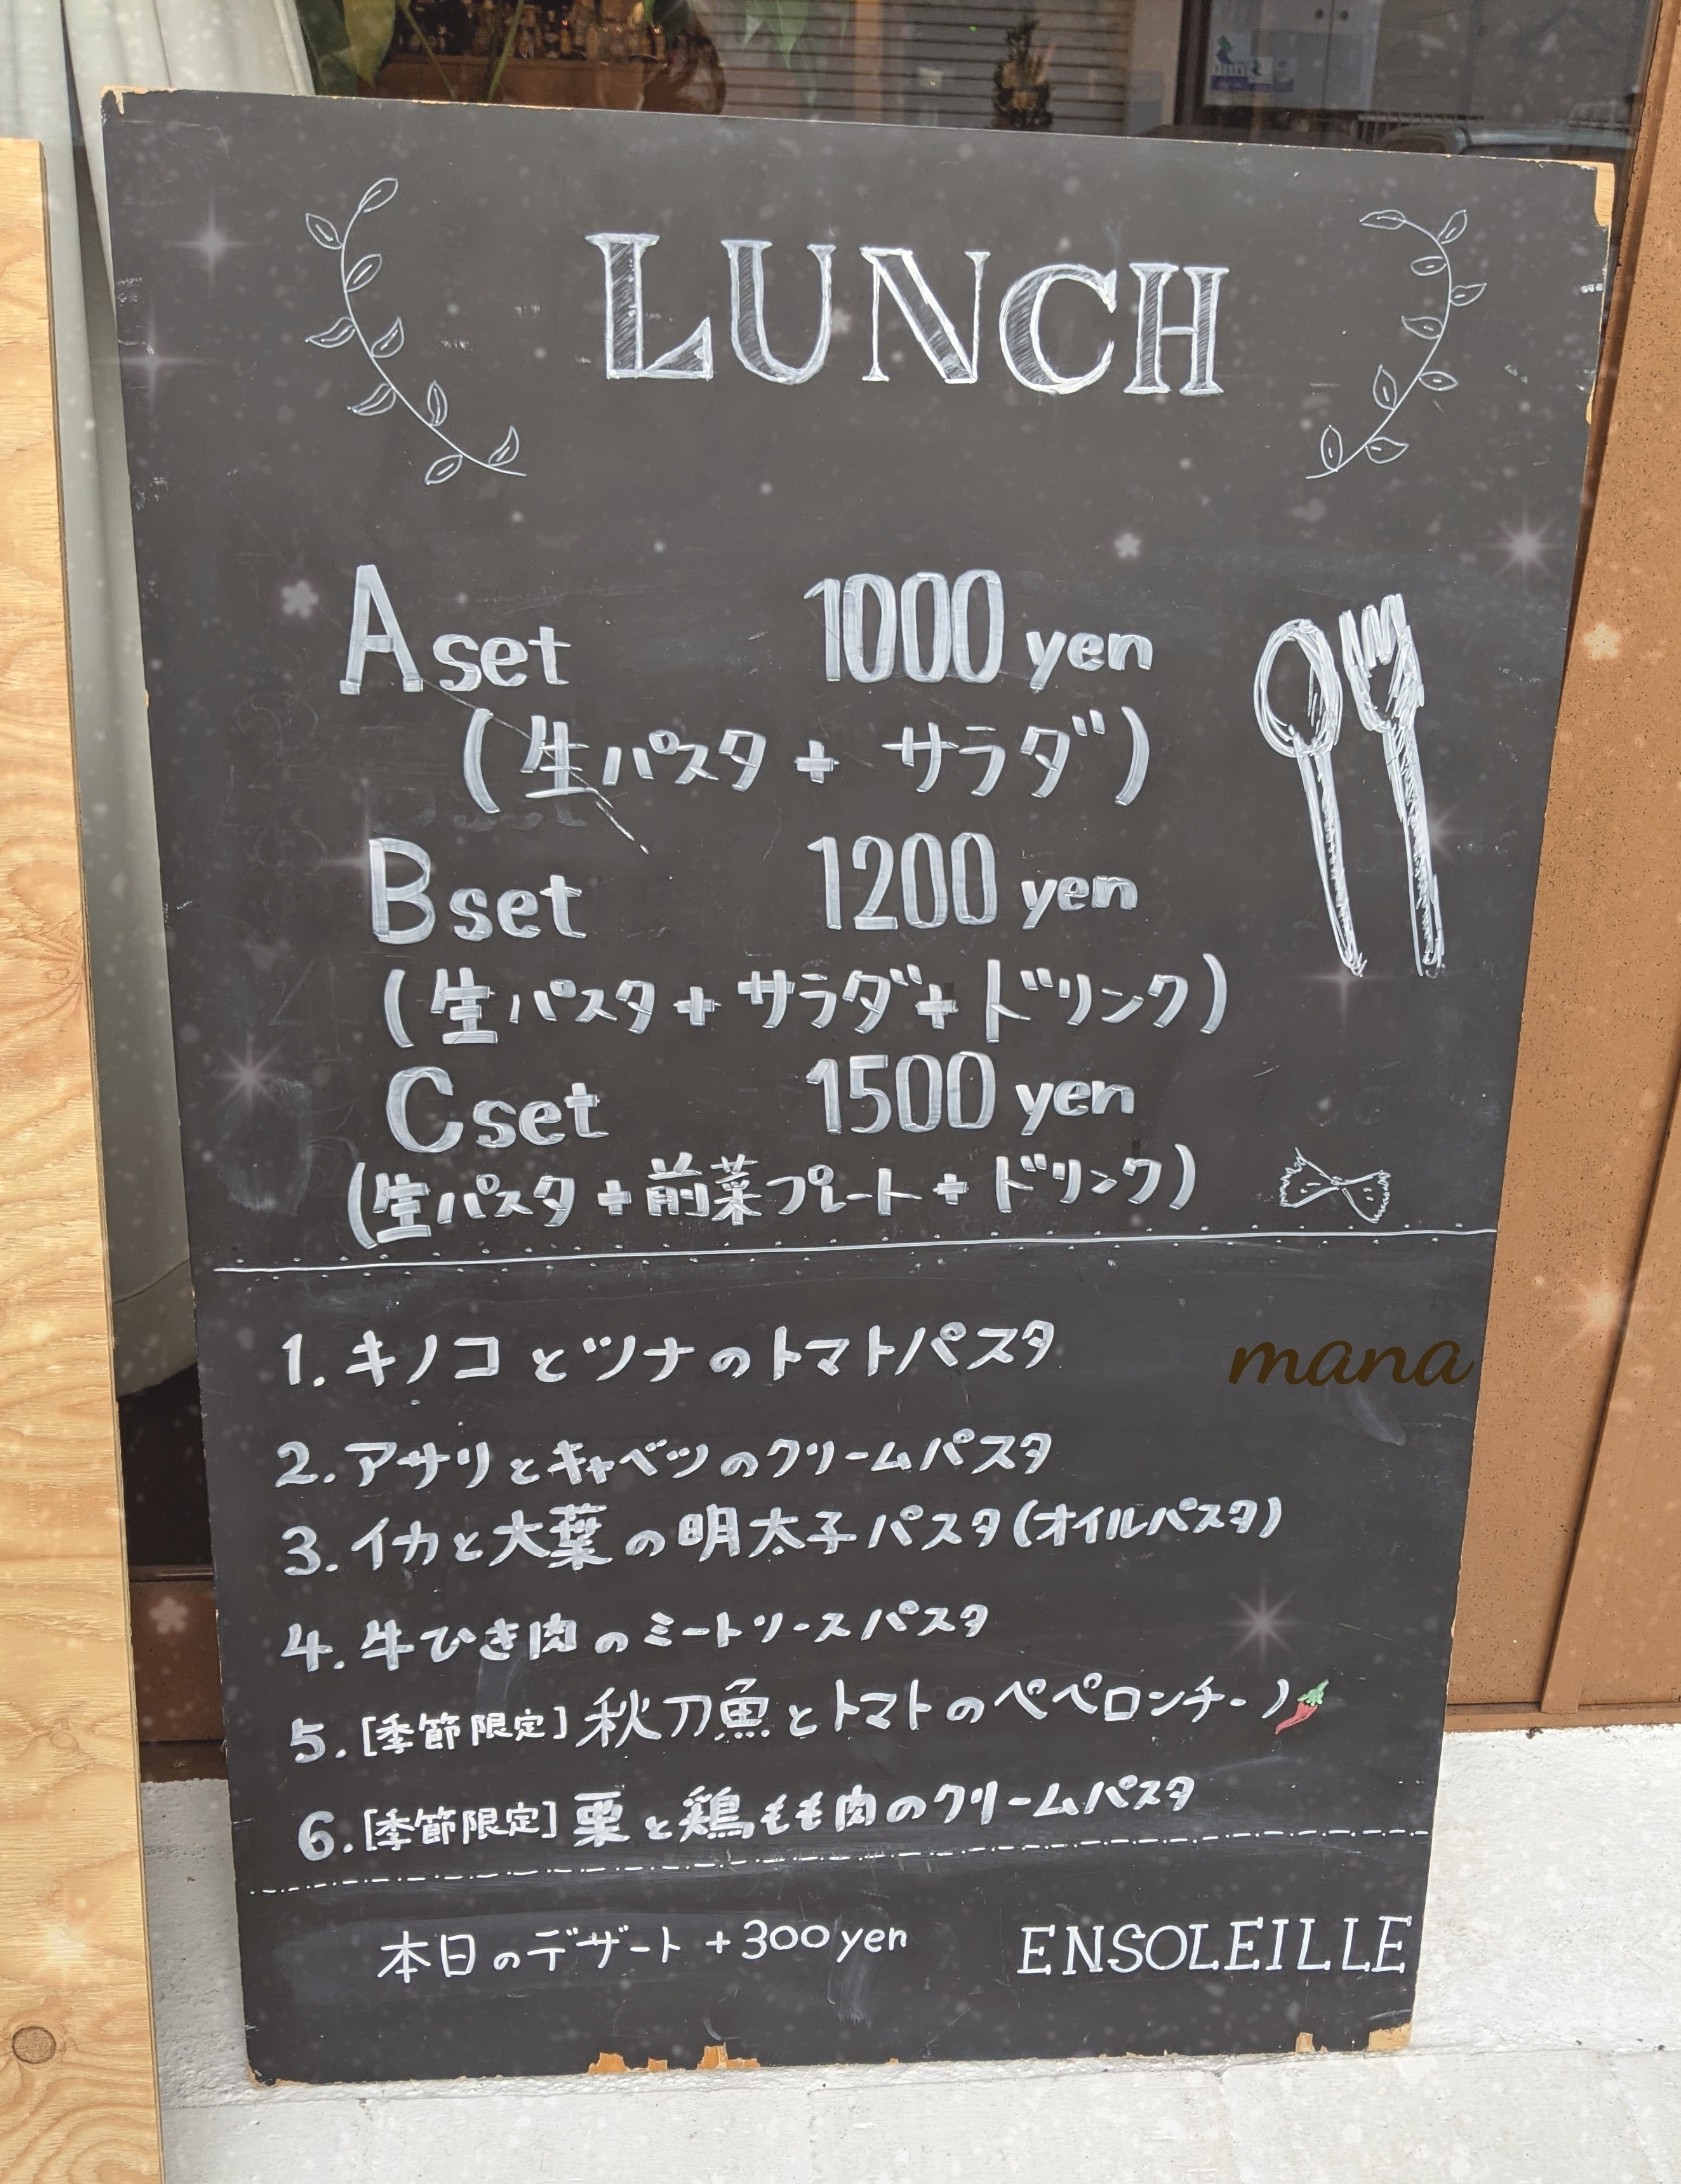 LUNCH
A set 1000 yen
(生パスタ + サラダ)
B set 1200 yen
(生パスタ + サラダ + ドリンク)
C set 1500 yen
(生パスタ + 前菜プレート + ドリンク)
1. キノコとツナのトマトパスタ
mana
2. アサリとキャベツのクリームパスタ
3. イカと大葉の明太子パスタ(オイルパスタ)
4. 牛ひき肉のミートソースパスタ
5. [季節限定] 秋刀魚とトマトのペペロンチーノ
6. [季節限定] 栗と鶏もも肉のクリームパスタ
本日のデザート +300yen
ENSOLEILLE